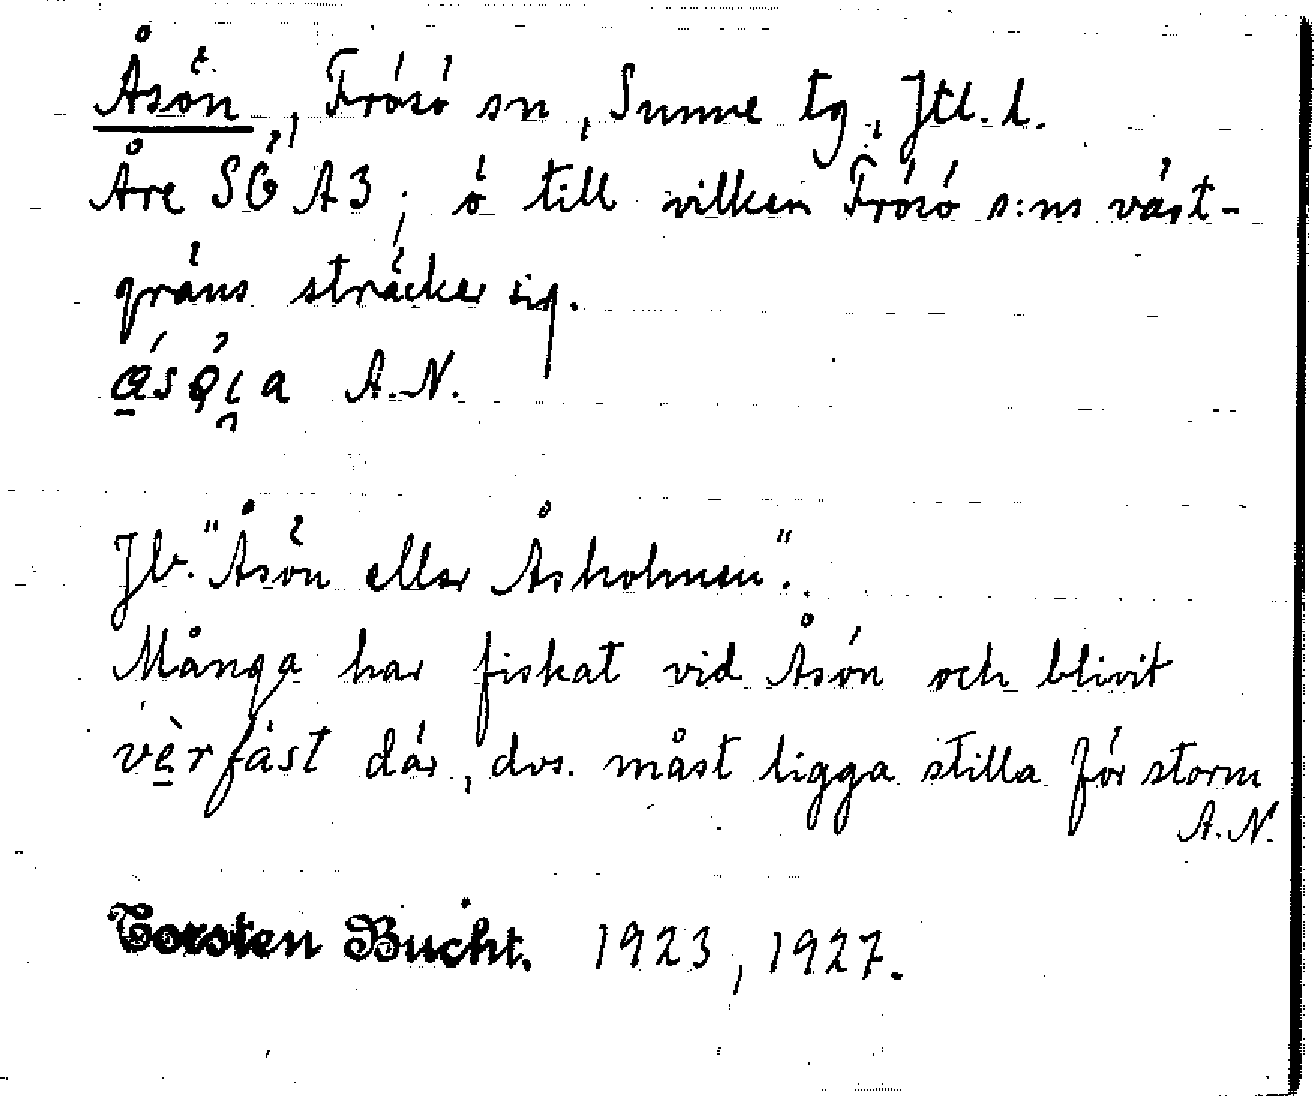 Åsön, Frösö sn, Sunne tg, Jtl. l.
Åre SÖ A3; ö till vilken Frösö s:ns väst-
gräns sträcker sig.
A.N.
Jb. "Åsön eller Åsholmen".
Många har fiskat vid Åsön och blivit
vèrfást där, dvs. måst ligga stilla för storm
A.N.
Torsten Bucht. 1923, 1927.